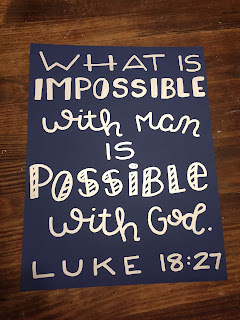 WHAT IS
IMPOSSIBLE
with man
IS
POSSIBLE
with God.
LUKE 18:27